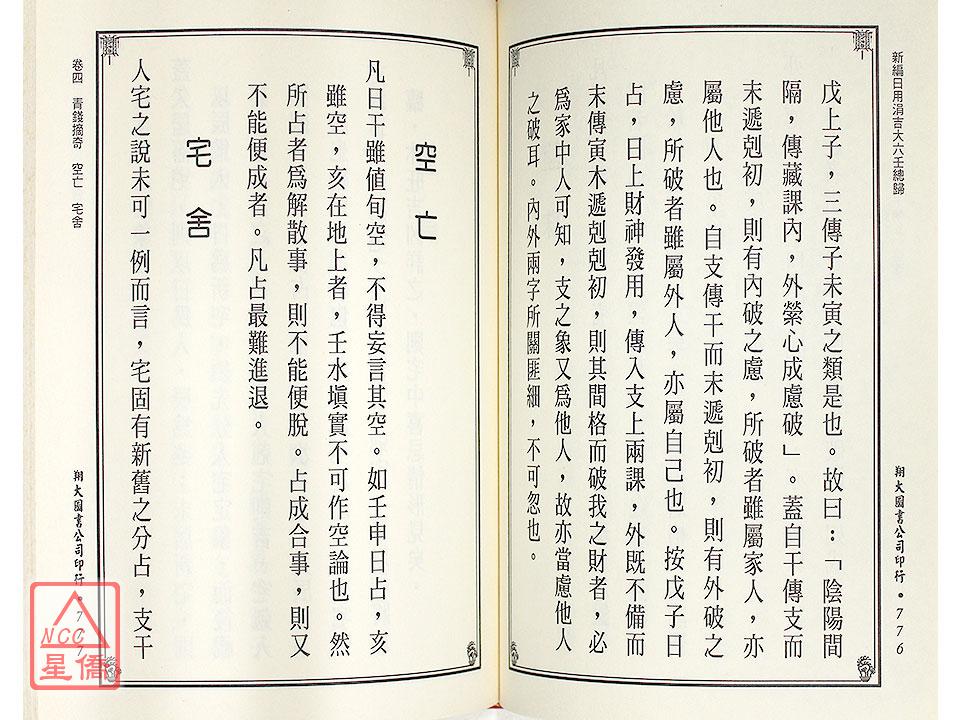 新編日用涓吉大六壬總歸
戊上子，三傳子未寅之類是也。故曰：「陰陽間
隔，傳藏課內，外縈心成慮破」。蓋自干傳支而
末遞剋初，則有內破之慮，所破者雖屬家人，亦
屬他人也。自支傳干而末遞剋初，則有外破之
慮，所破者雖屬外人，亦屬自己也。按戊子日
占，日上財神發用，傳入支上兩課，外既不備而
末傳寅木遞剋剋初，則其間格而破我之財者，必
為家中人可知，支之象又為他人，故亦當慮他人
之破耳。內外兩字所關匪細，不可忽也。
翔大圖書公司印行。776
空亡
凡日干雖值旬空，不得妄言其空。如壬申日占，亥
雖空，亥在地上者，壬水填實不可作空論也。然
所占者為解散事，則不能便脫。占成合事，則又
不能便成者。凡占最難進退。
宅舍
人宅之說未可一例而言，宅固有新舊之分占，支干
卷四 青錢摘奇 空亡 宅舍
翔大圖書公司印行。777
NCC
星僑